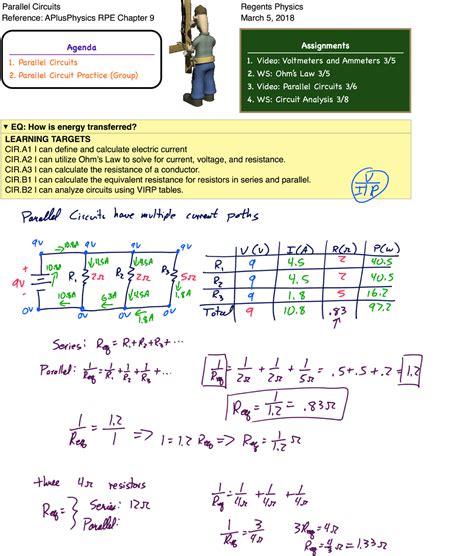 Parallel Circuits
Reference: APlusPhysics RPE Chapter 9
Regents Physics
March 5, 2018
Agenda
1. Parallel Circuits
2. Parallel Circuit Practice (Group)
Assignments
1. Video: Voltmeters and Ammeters 3/5
2. WS: Ohm's Law 3/5
3. Video: Parallel Circuits 3/6
4. WS: Circuit Analysis 3/8
▼ EQ: How is energy transferred?
LEARNING TARGETS
CIR.A1 I can define and calculate electric current
CIR.A2 I can utilize Ohm's Law to solve for current, voltage, and resistance.
CIR.A3 I can calculate the resistance of a conductor.
CIR.B1 I can calculate the equivalent resistance for resistors in series and parallel.
CIR.B2 I can analyze circuits using VIRP tables.
V
I R P
Parallel Circuits have multiple current paths
9V 10.8A 9V 9V 9V
10.8A 4.5A 4.5A
+ 9V - R₁ 2Ω R₂ 2Ω R₃ 5Ω
10.8A 6.3A 4.5A 1.8A
0V 0V 0V 1.8A 0V
V(V) I(A) R(Ω) P(W)
R₁ 9 4.5 2 40.5
R₂ 9 4.5 2 40.5
R₃ 9 1.8 5 16.2
Total 9 10.8 .83 97.2
Series: Req = R₁+R₂+R₃+...
Parallel: 1/Req = 1/R₁ + 1/R₂ + 1/R₃ + ...
1/Req = 1/2Ω + 1/2Ω + 1/5Ω = .5+.5+.2 = 1.2
Req = 1/1.2 = .83Ω
1/Req = 1.2/1 => 1 = 1.2 Req => Req = 1/1.2 Ω
three 4Ω resistors
Req = } Series: 12Ω
Parallel:
1/Req = 1/4Ω + 1/4Ω + 1/4Ω
1/Req = 3/4Ω 3Req = 4Ω
Req = 4/3 Ω = 1.33Ω